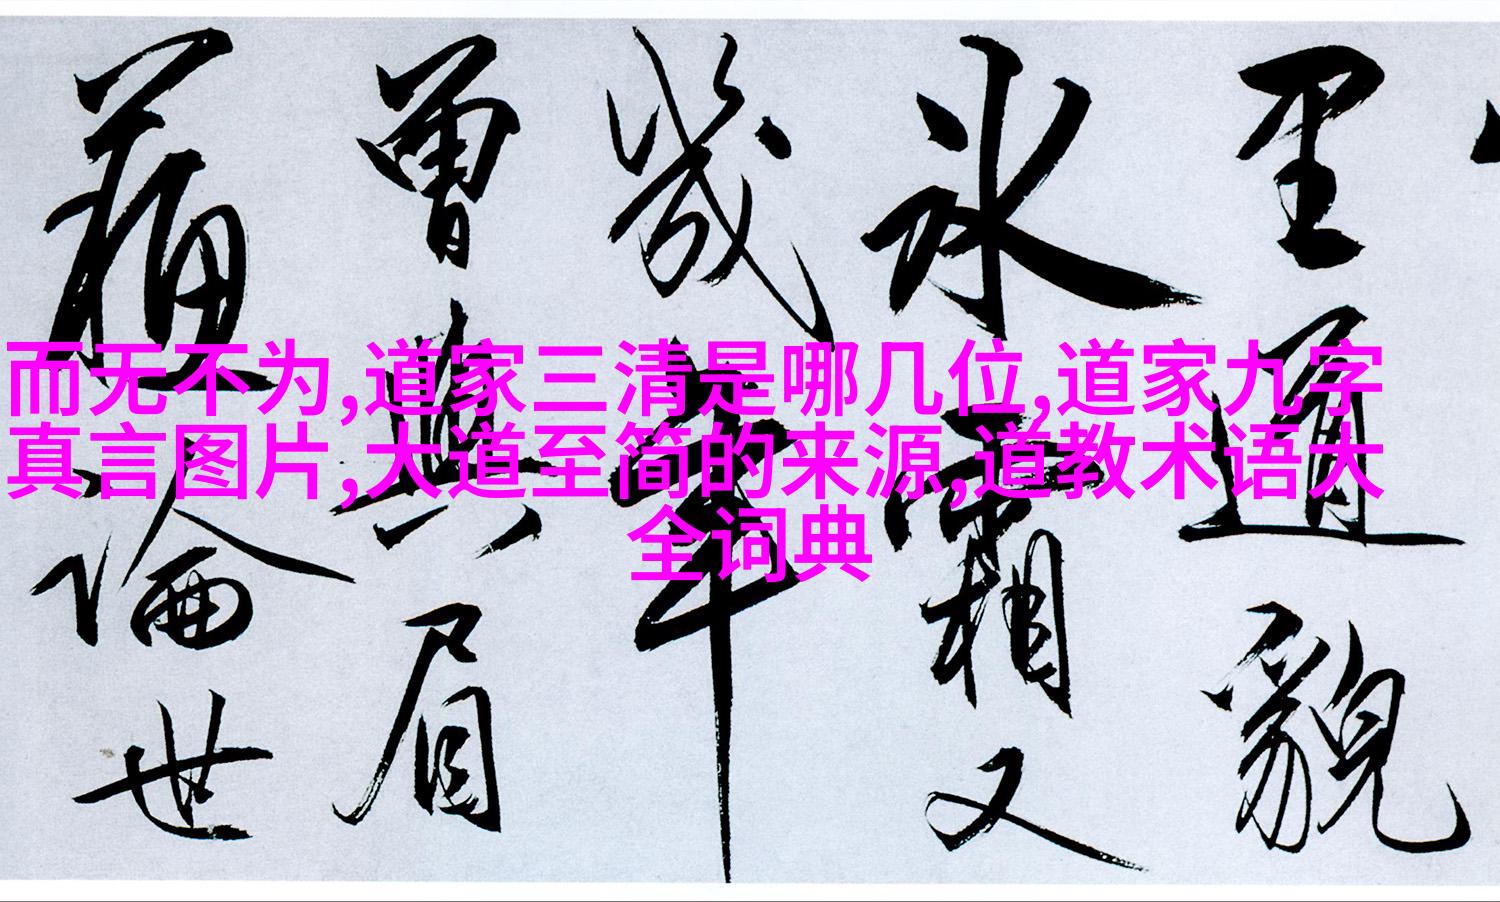 而无不为,道家三清是哪几位,道家九字
真言图片,大道至简的来源,道教术语大
全词典
里通貌
氷霜又
幾年
曾與眉
論世